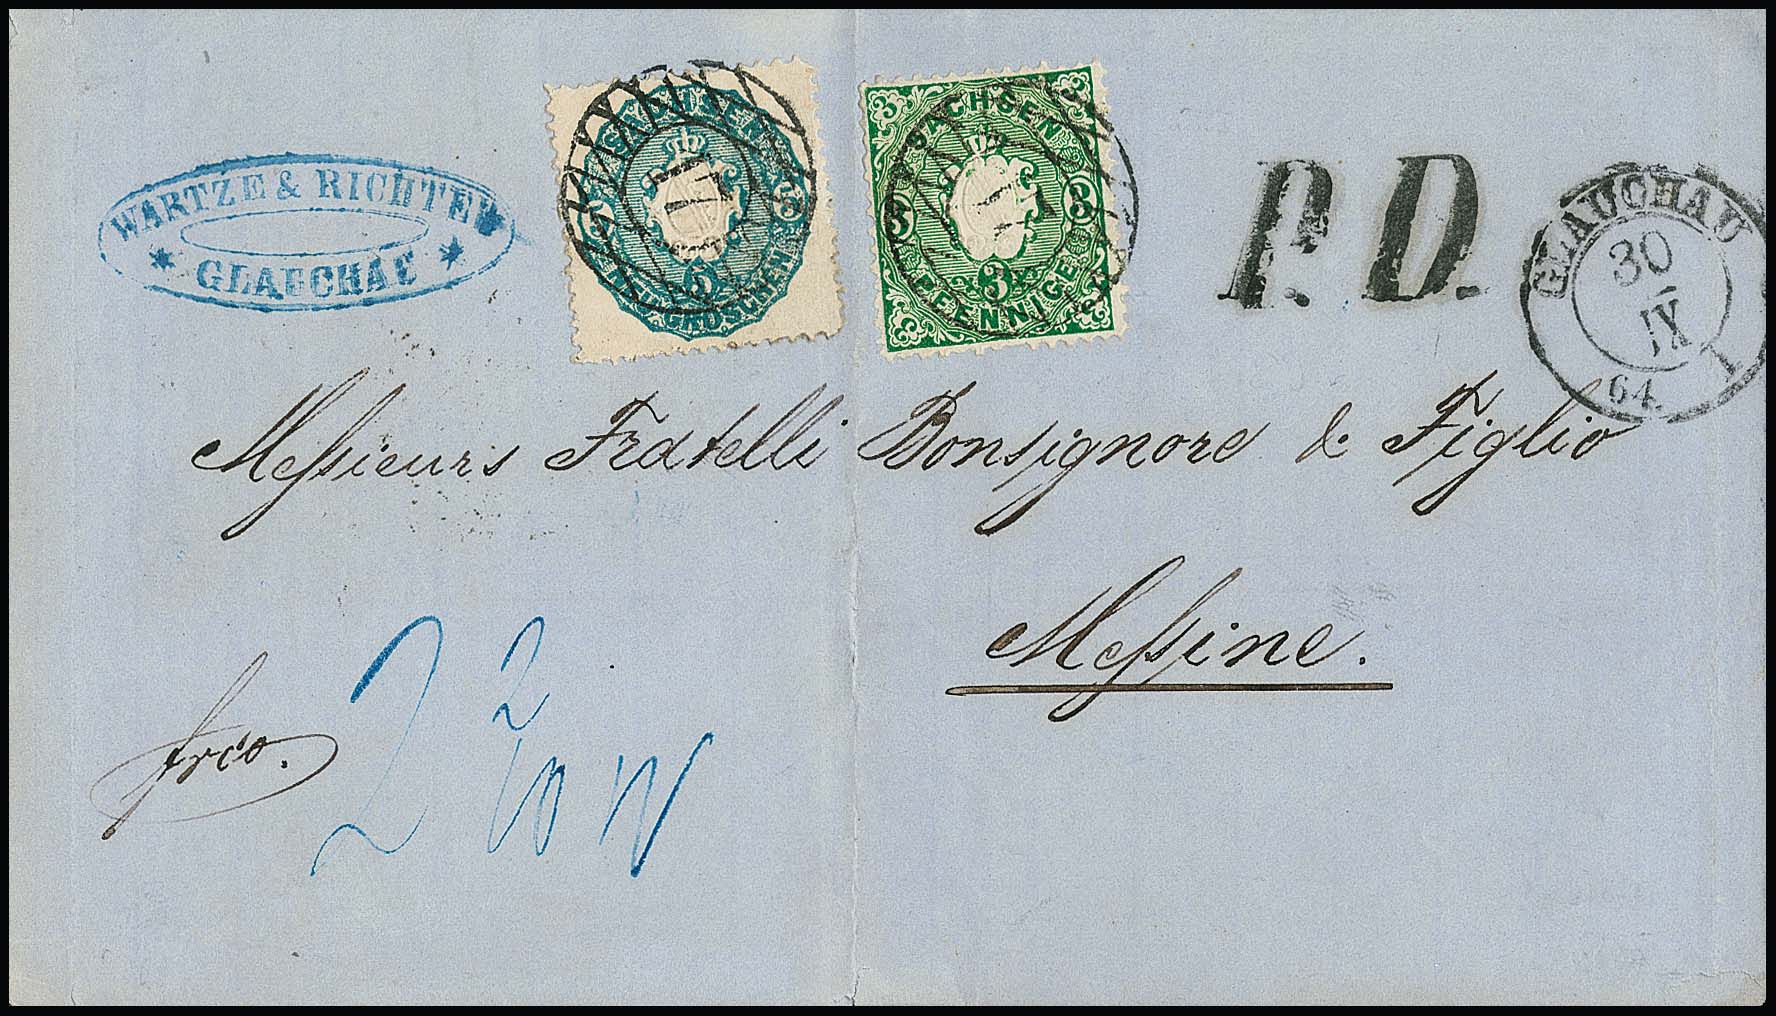 WARTZE & RICHTER
* GLAUCHAU *
SACHSEN
5 5
5
NEU-GROSCHEN
SACHSEN
3 3
3 3
3
PFENNIGE
P. D.
GLAUCHAU
30
IX
64. 1
Messieurs Fratelli Bonsignore & Figlio
Messine.
frco.
2 2/10 W